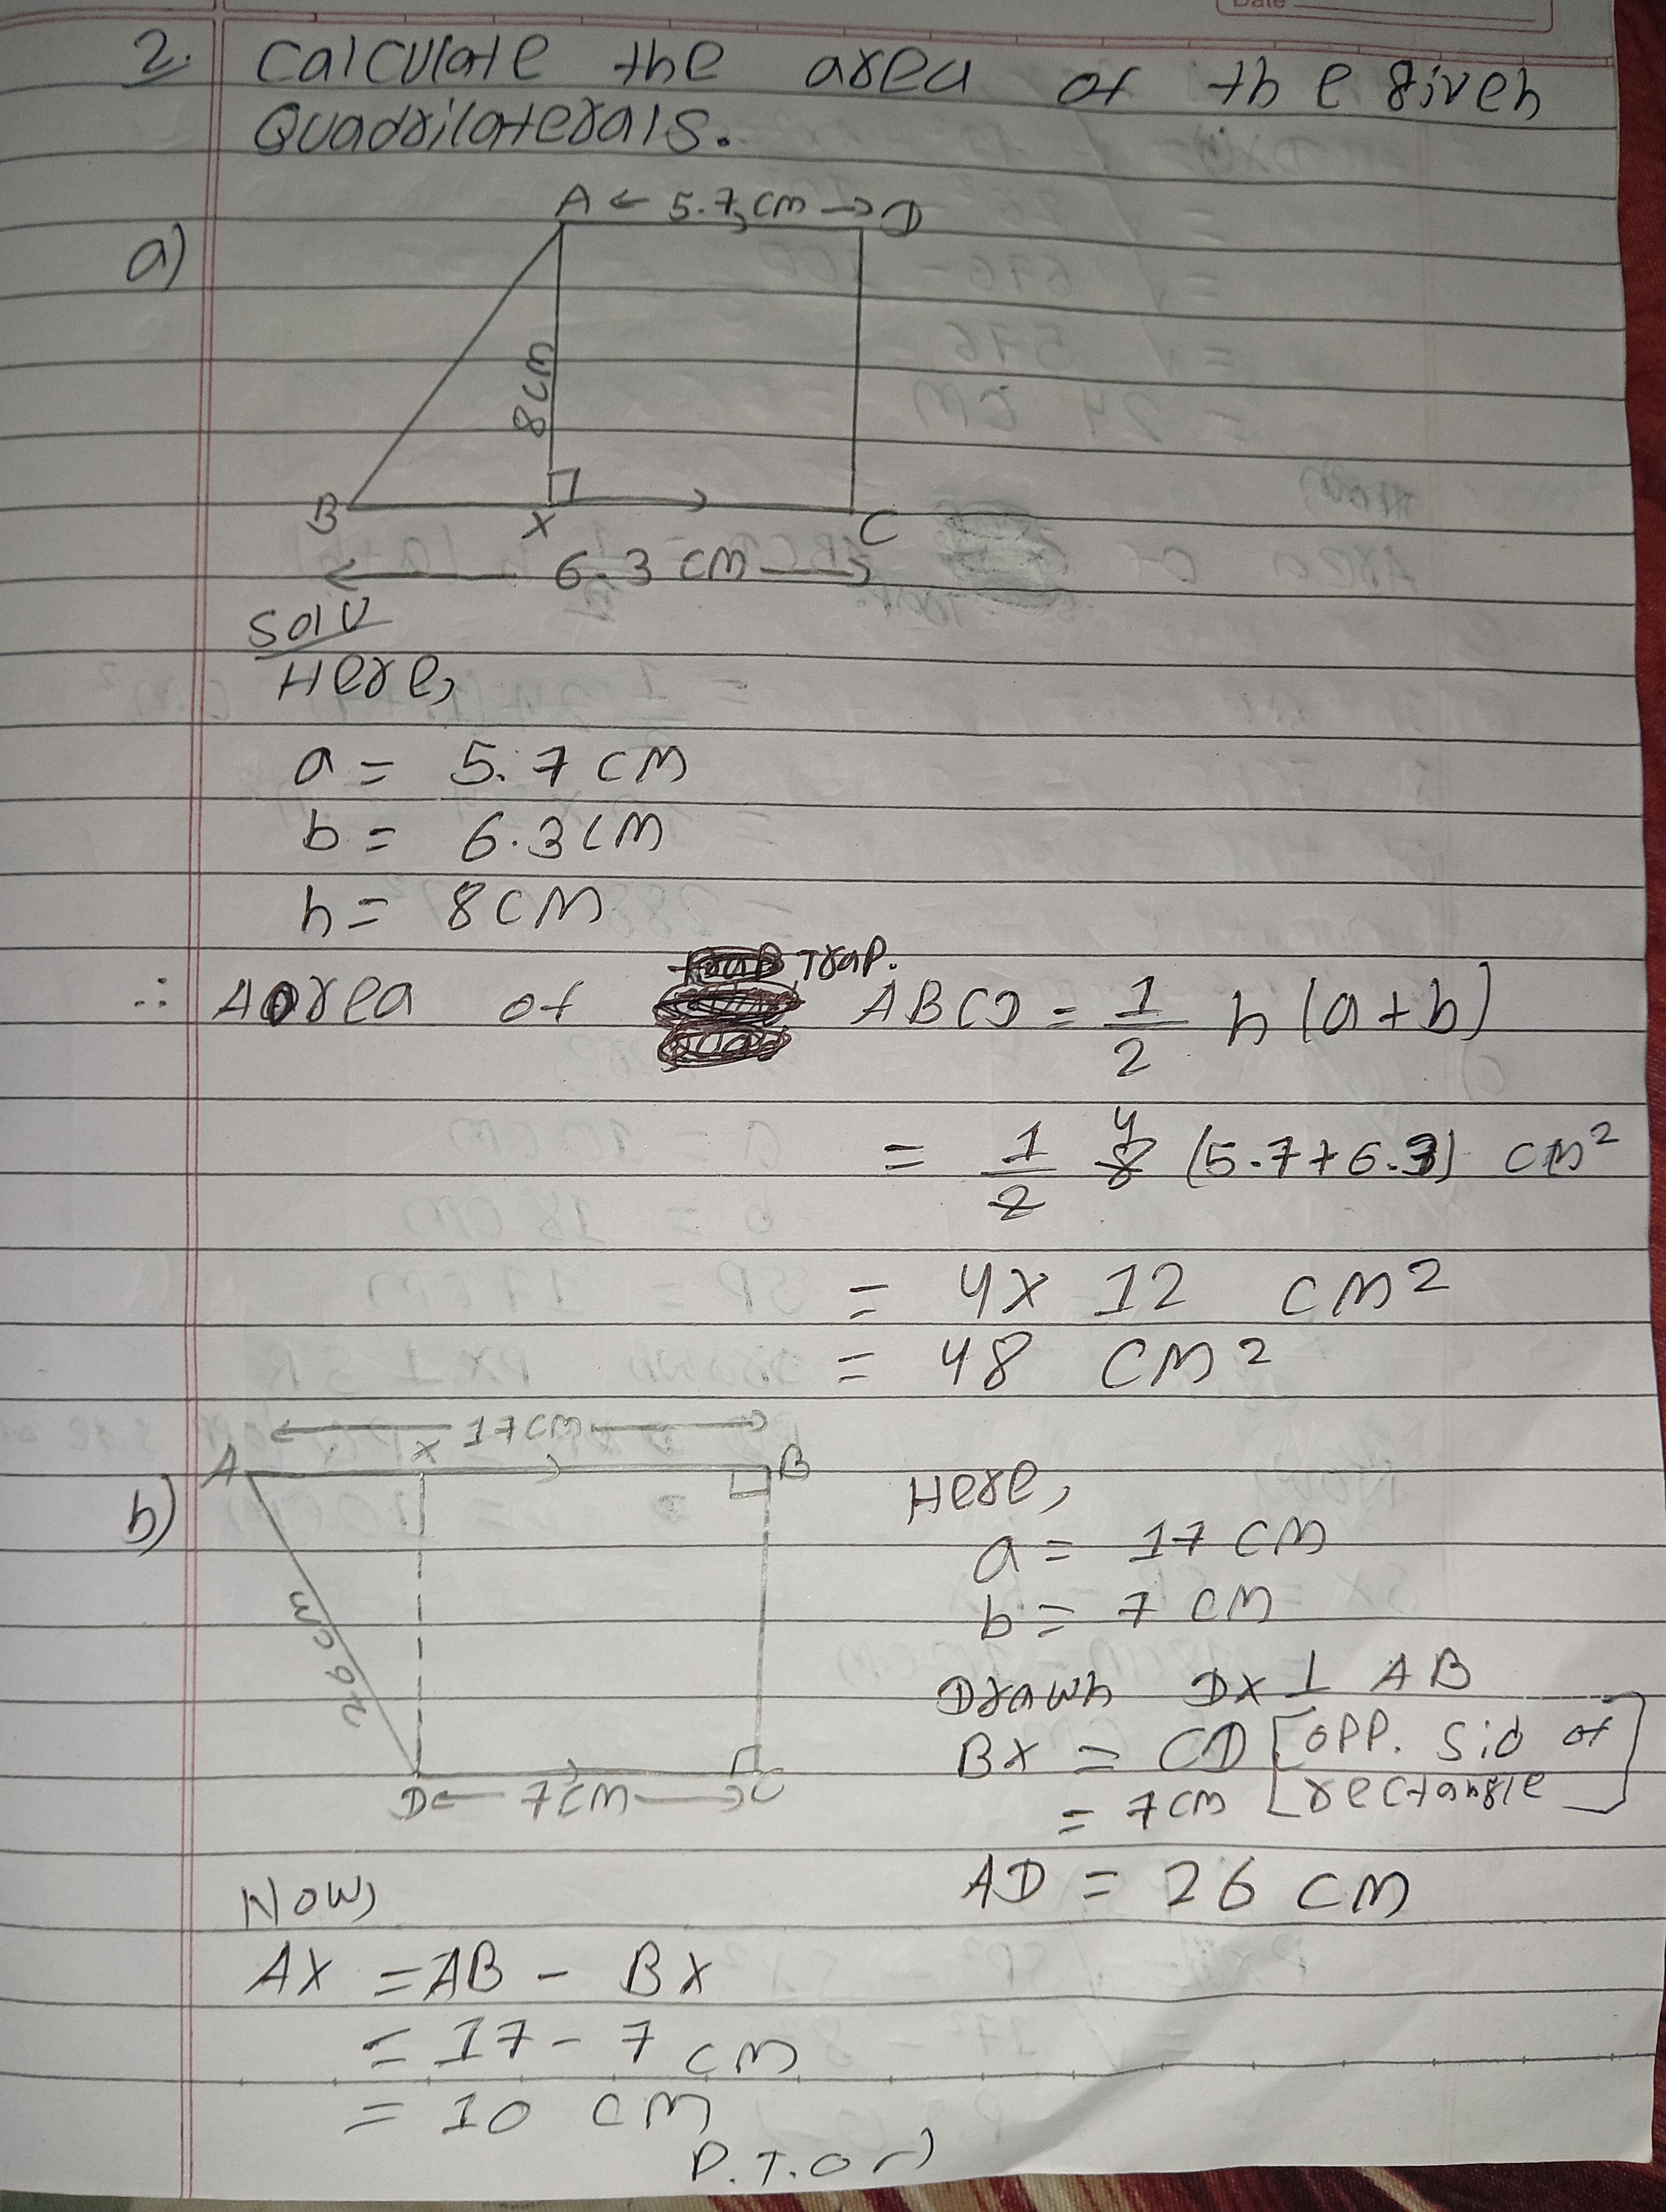 Date
2. Calculate the area of the given
Quadrilaterals.
a)
A ← 5.7 cm → D
8cm
B X C
← 6.3 cm →
Solu
Here,
a = 5.7 cm
b = 6.3 cm
h = 8 cm
∴ Aorea of Trap. ABCD = 1/2 h (a+b)
= 1/2 8 4 (5.7+6.3) cm²
= 4 x 12 cm²
= 48 cm²
b)
← 17cm →
A X B
26 cm
D ← 7cm → C
Here,
a = 17 cm
b = 7 cm
Drawn DX ⊥ AB
BX = CD [opp. sid of
= 7cm rectangle]
AD = 26 cm
Now,
AX = AB - BX
= 17 - 7 cm
= 10 cm